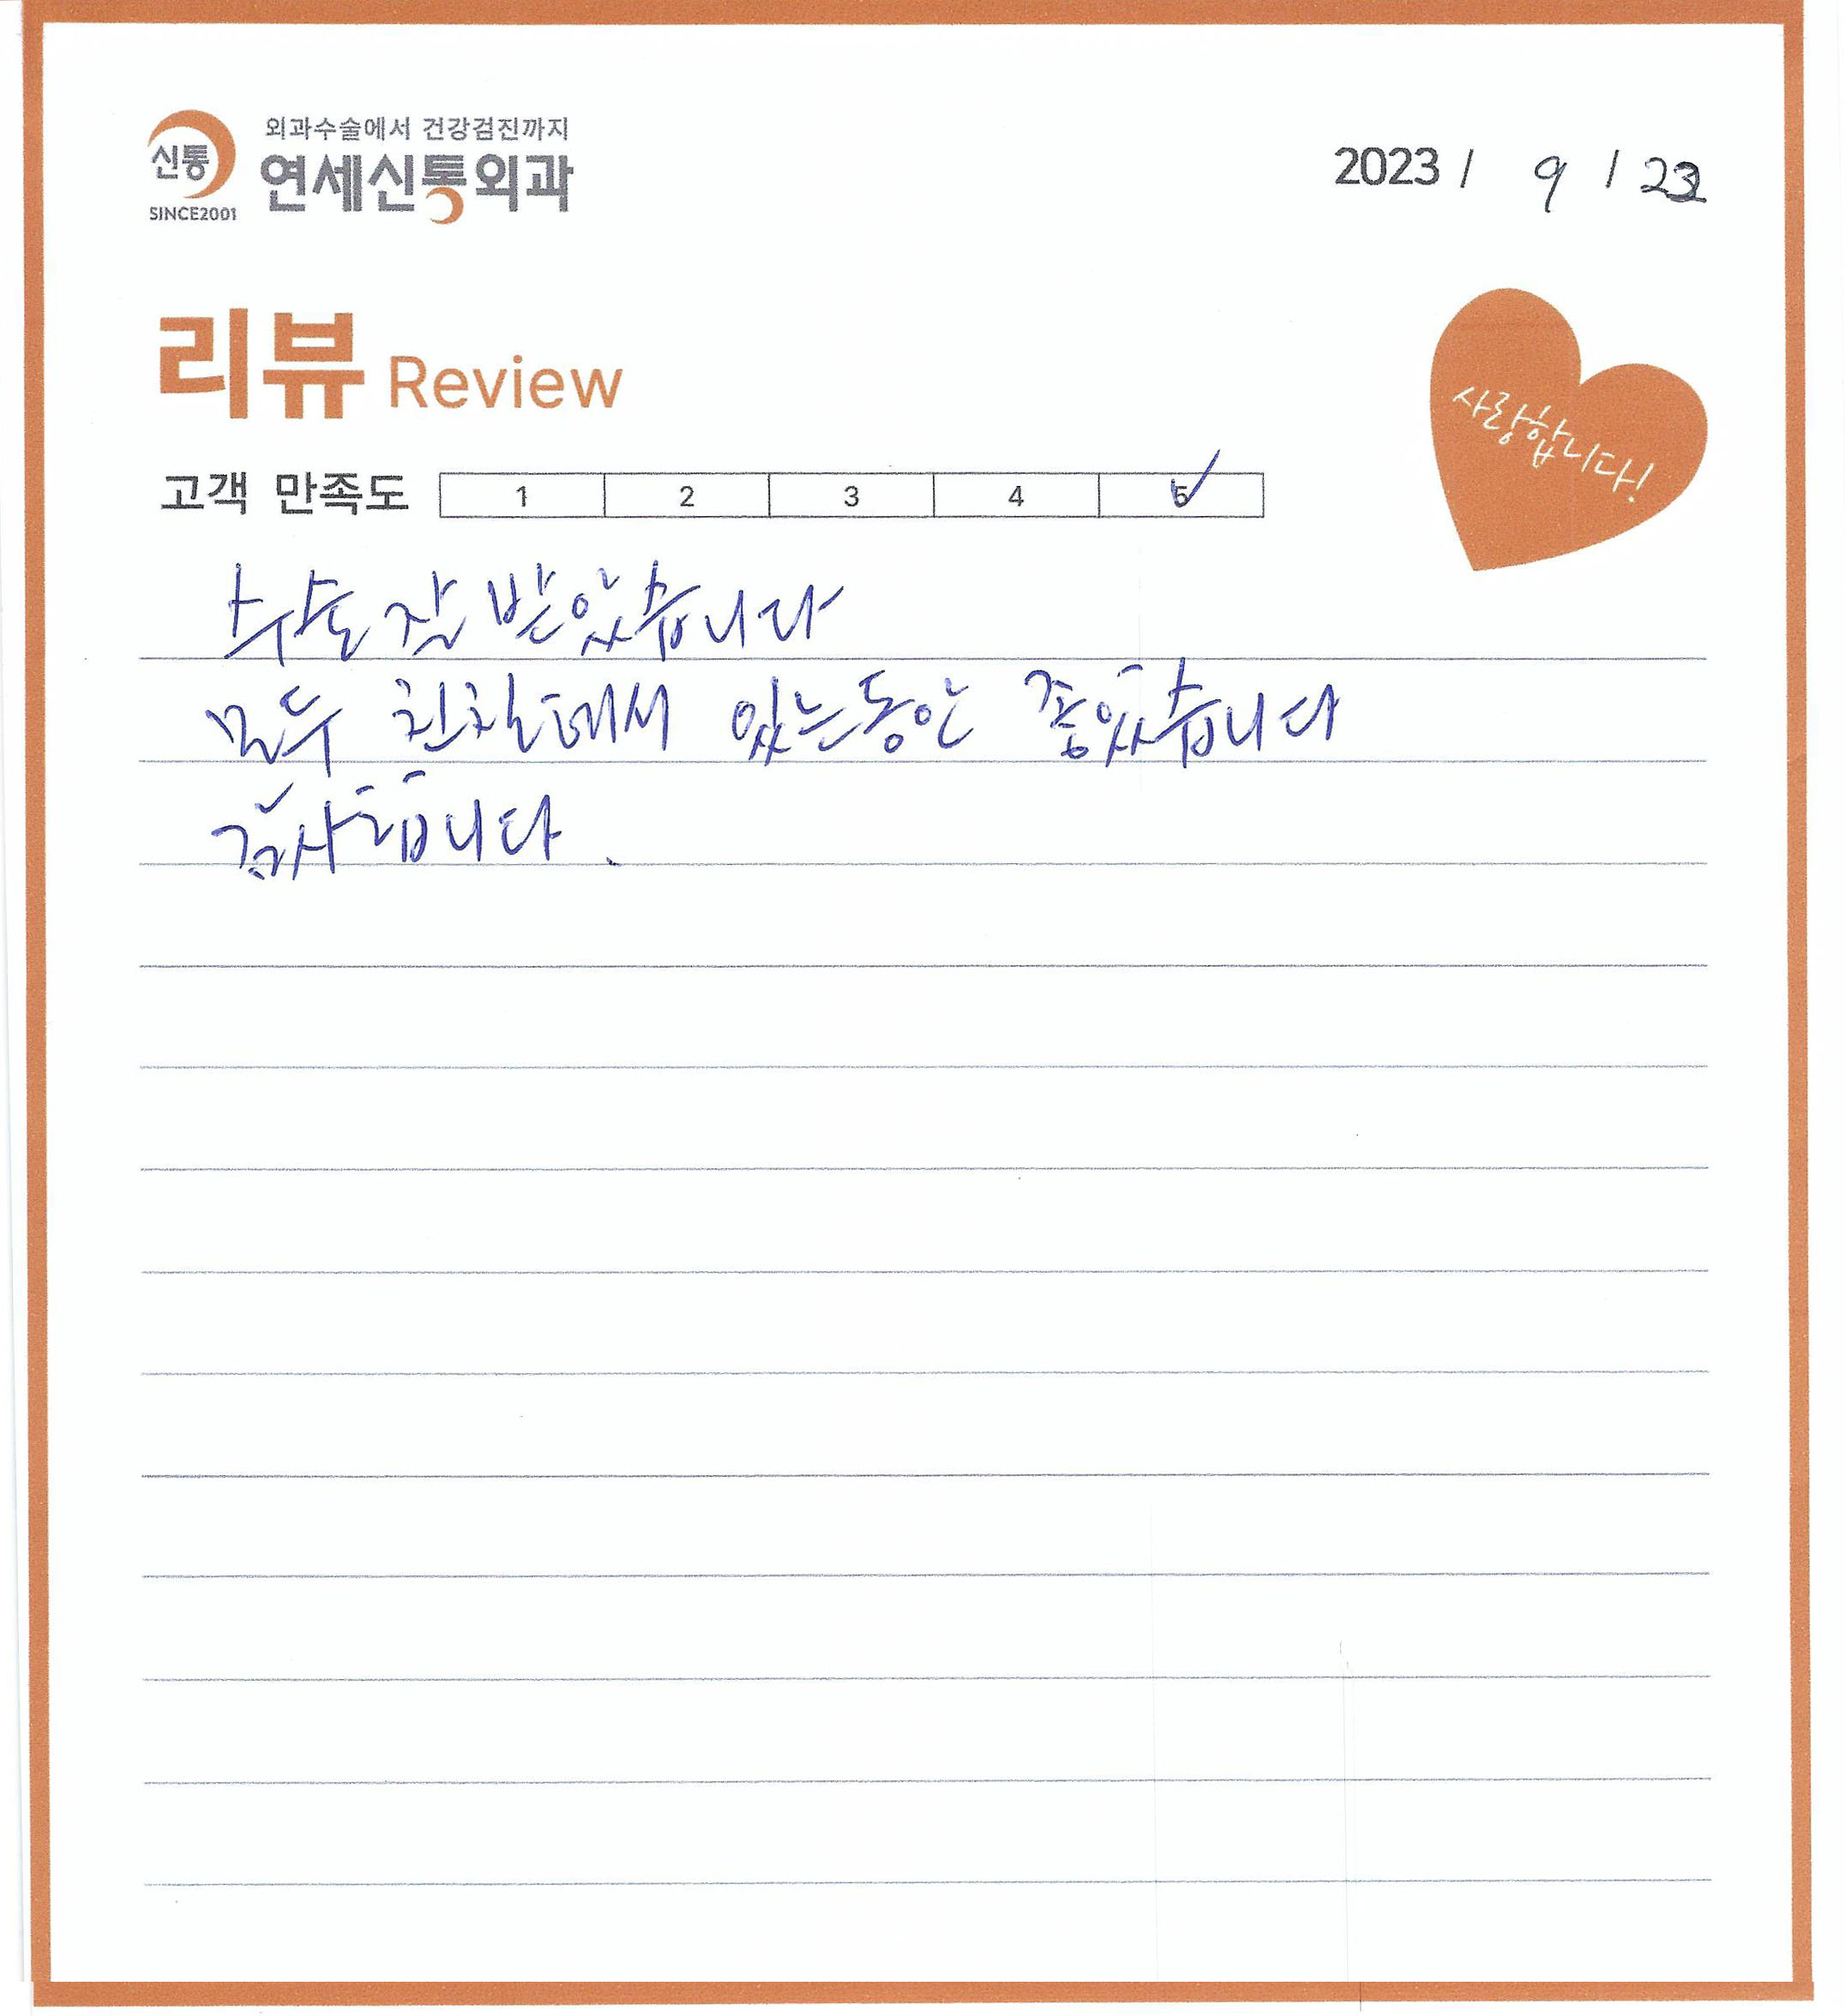 외과수술에서 건강검진까지
신통 연세신통외과
SINCE2001
2023 / 9 / 23
리뷰 Review
사랑합니다!
고객 만족도 1 2 3 4 5
수술 잘 받았습니다
모두 친절해서 있는동안 좋았습니다
감사합니다.